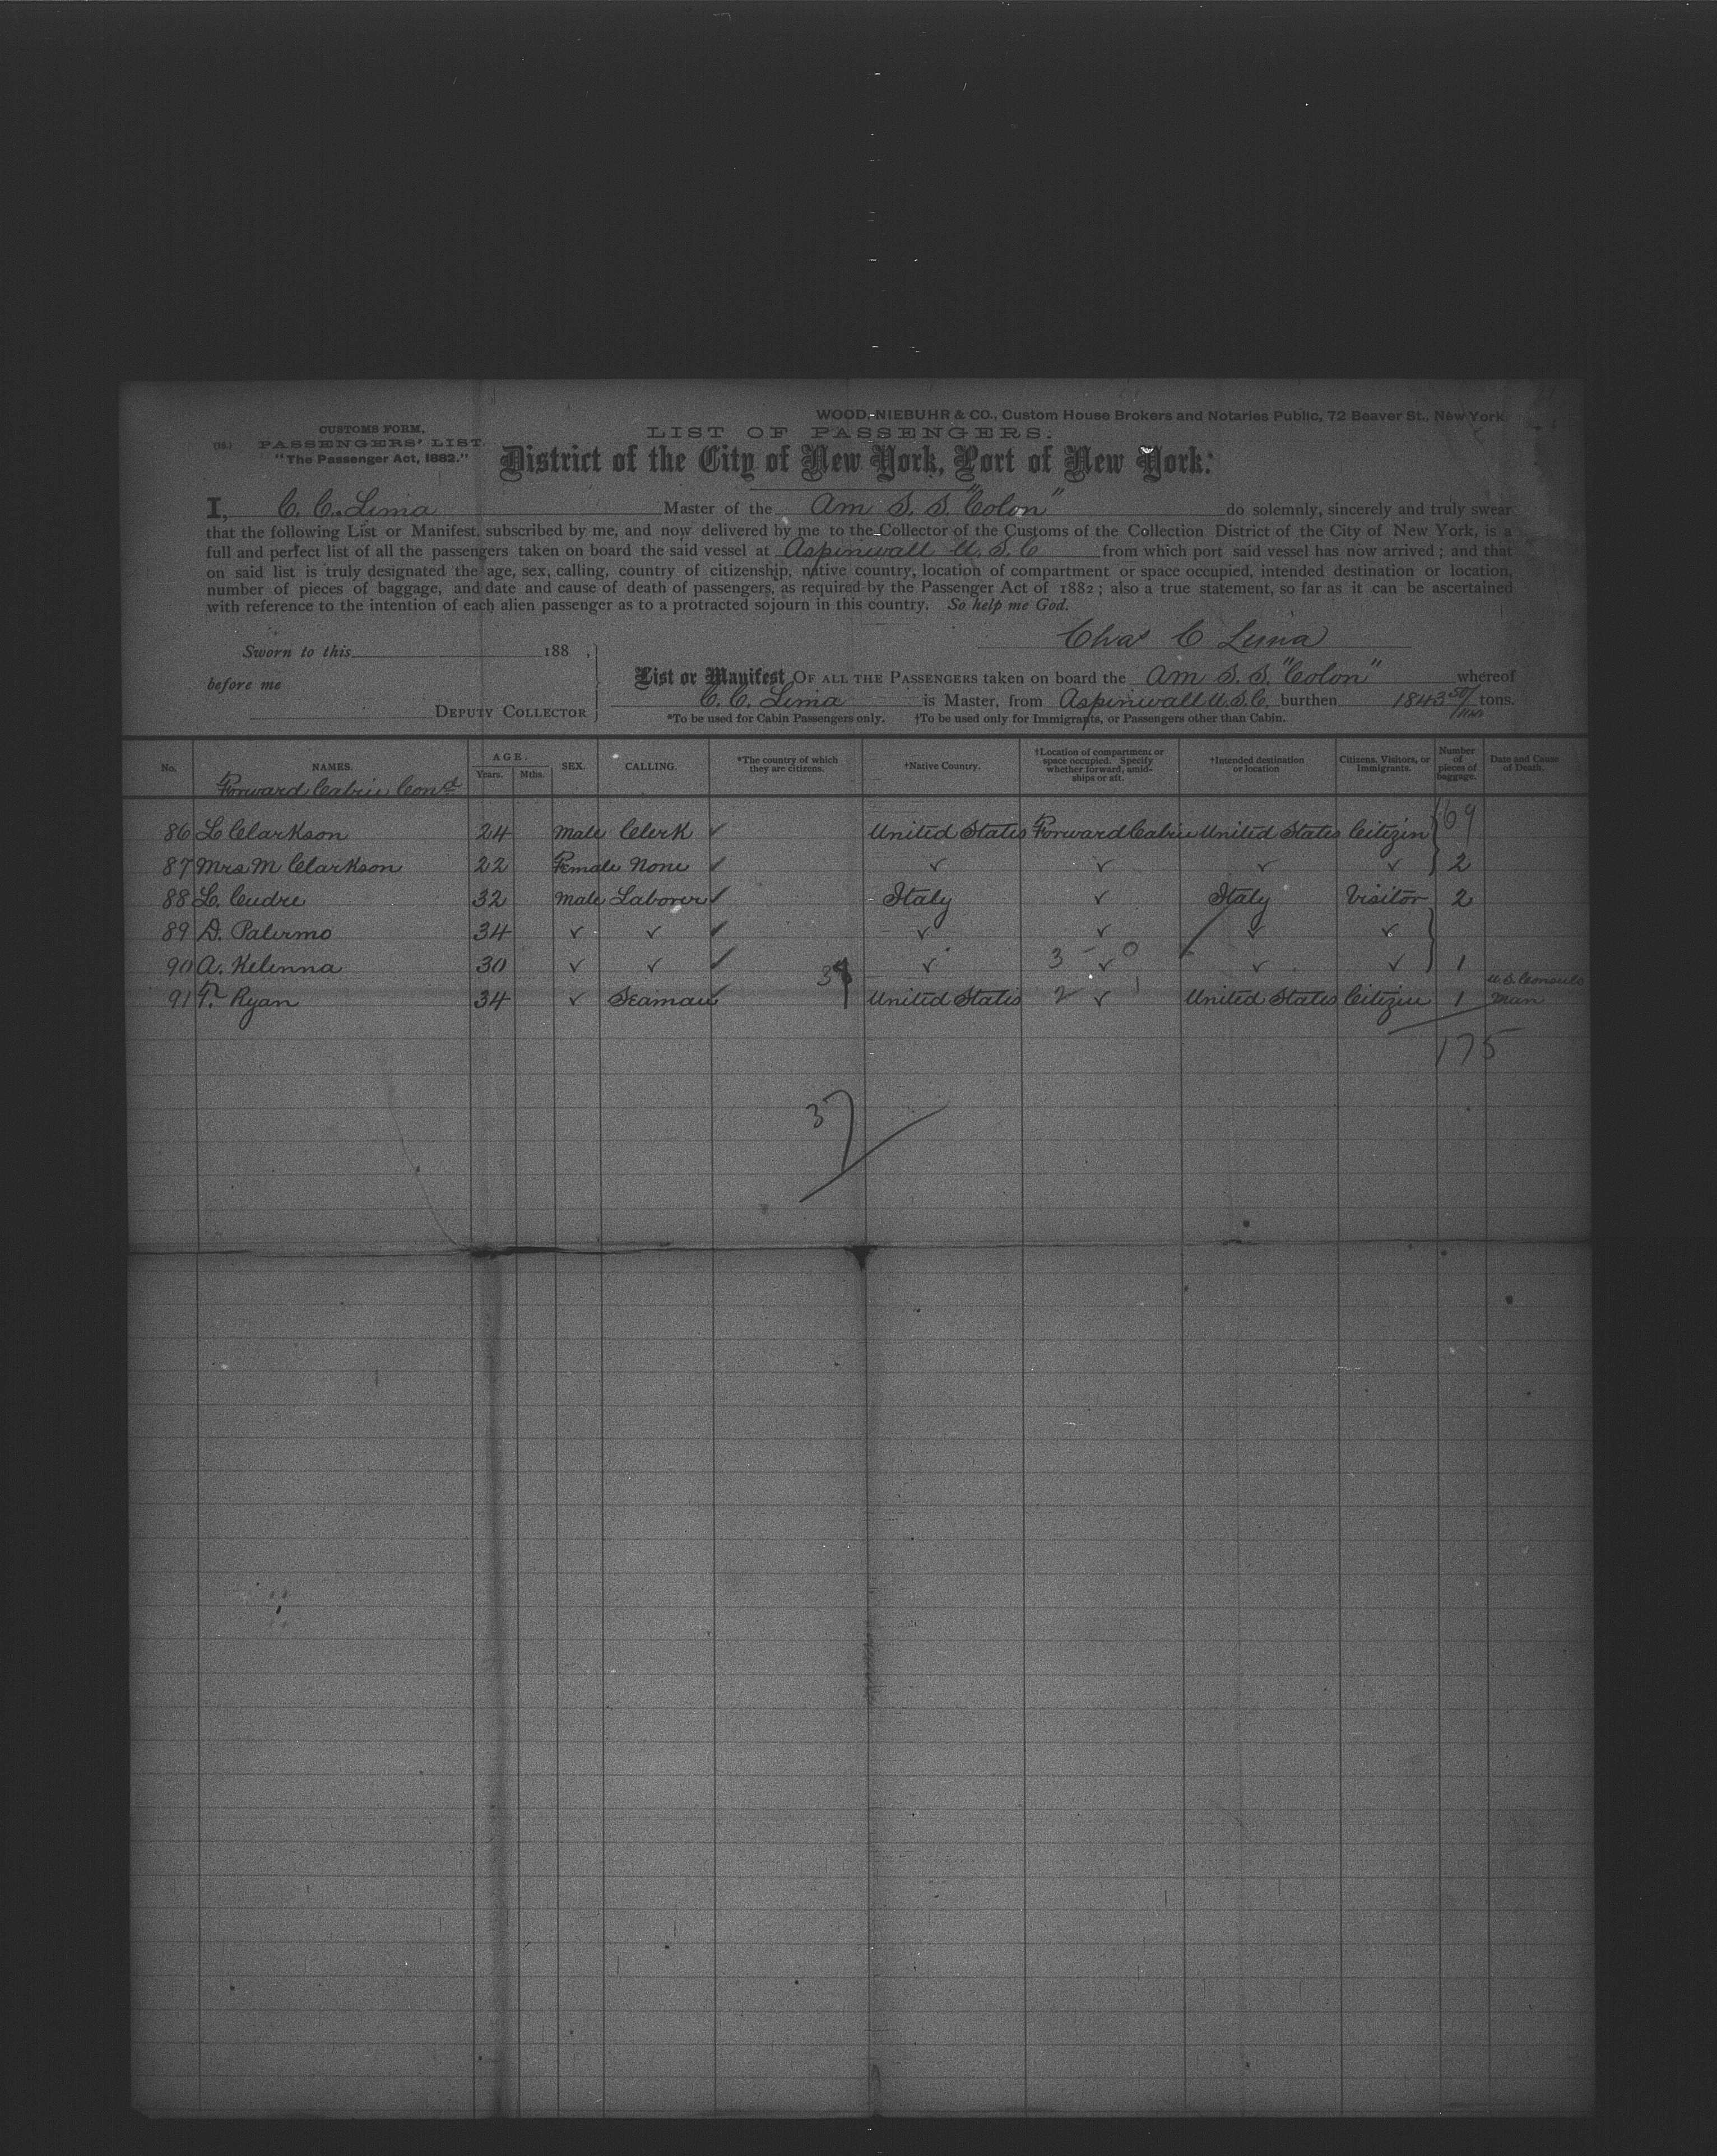 WOOD-NIEBUHR & CO., Custom House Brokers and Notaries Public, 72 Beaver St., New York
CUSTOMS FORM,
PASSENGERS' LIST.
"The Passenger Act, 1882."
LIST OF PASSENGERS.
District of the City of New York, Port of New York:
I, C. C. Lima Master of the Am S. S. "Colon" do solemnly, sincerely and truly swear
that the following List or Manifest, subscribed by me, and now delivered by me to the Collector of the Customs of the Collection District of the City of New York, is a
full and perfect list of all the passengers taken on board the said vessel at Aspinwall U. S. C from which port said vessel has now arrived; and that
on said list is truly designated the age, sex, calling, country of citizenship, native country, location of compartment or space occupied, intended destination or location,
number of pieces of baggage, and date and cause of death of passengers, as required by the Passenger Act of 1882; also a true statement, so far as it can be ascertained
with reference to the intention of each alien passenger as to a protracted sojourn in this country. So help me God.
Chas C Lima
Sworn to this 188 ,
before me
DEPUTY COLLECTOR
List or Manifest OF ALL THE PASSENGERS taken on board the Am S. S. "Colon" whereof
C. C. Lima is Master, from Aspinwall U. S. C. burthen 1843 50/100 tons.
*To be used for Cabin Passengers only. †To be used only for Immigrants, or Passengers other than Cabin.
No. NAMES. AGE. Years. Mths. SEX. CALLING. *The country of which they are citizens. †Native Country. †Location of compartment or space occupied. Specify whether forward, amidships or aft. †Intended destination or location Citizens, Visitors, or Immigrants. Number of pieces of baggage. Date and Cause of Death.
Forward Cabin Cond
169
86 L Clarkson 24 Male Clerk ✓ United States Forward Cabin United States Citizen
87 Mrs M Clarkson 22 Female None ✓ ✓ ✓ ✓ ✓ 2
88 L. Cudre 32 Male Laborer ✓ Italy ✓ Italy Visitor 2
89 D. Palermo 34 ✓ ✓ ✓ ✓ ✓ ✓ ✓
90 A. Kelenna 30 ✓ ✓ ✓ ✓ 3 - 0 ✓ ✓ ✓ 1
91 T. Ryan 34 ✓ Seaman ✓ United States 2 ✓ 1 United States Citizen 1 U. S. Consuls Man
175
37